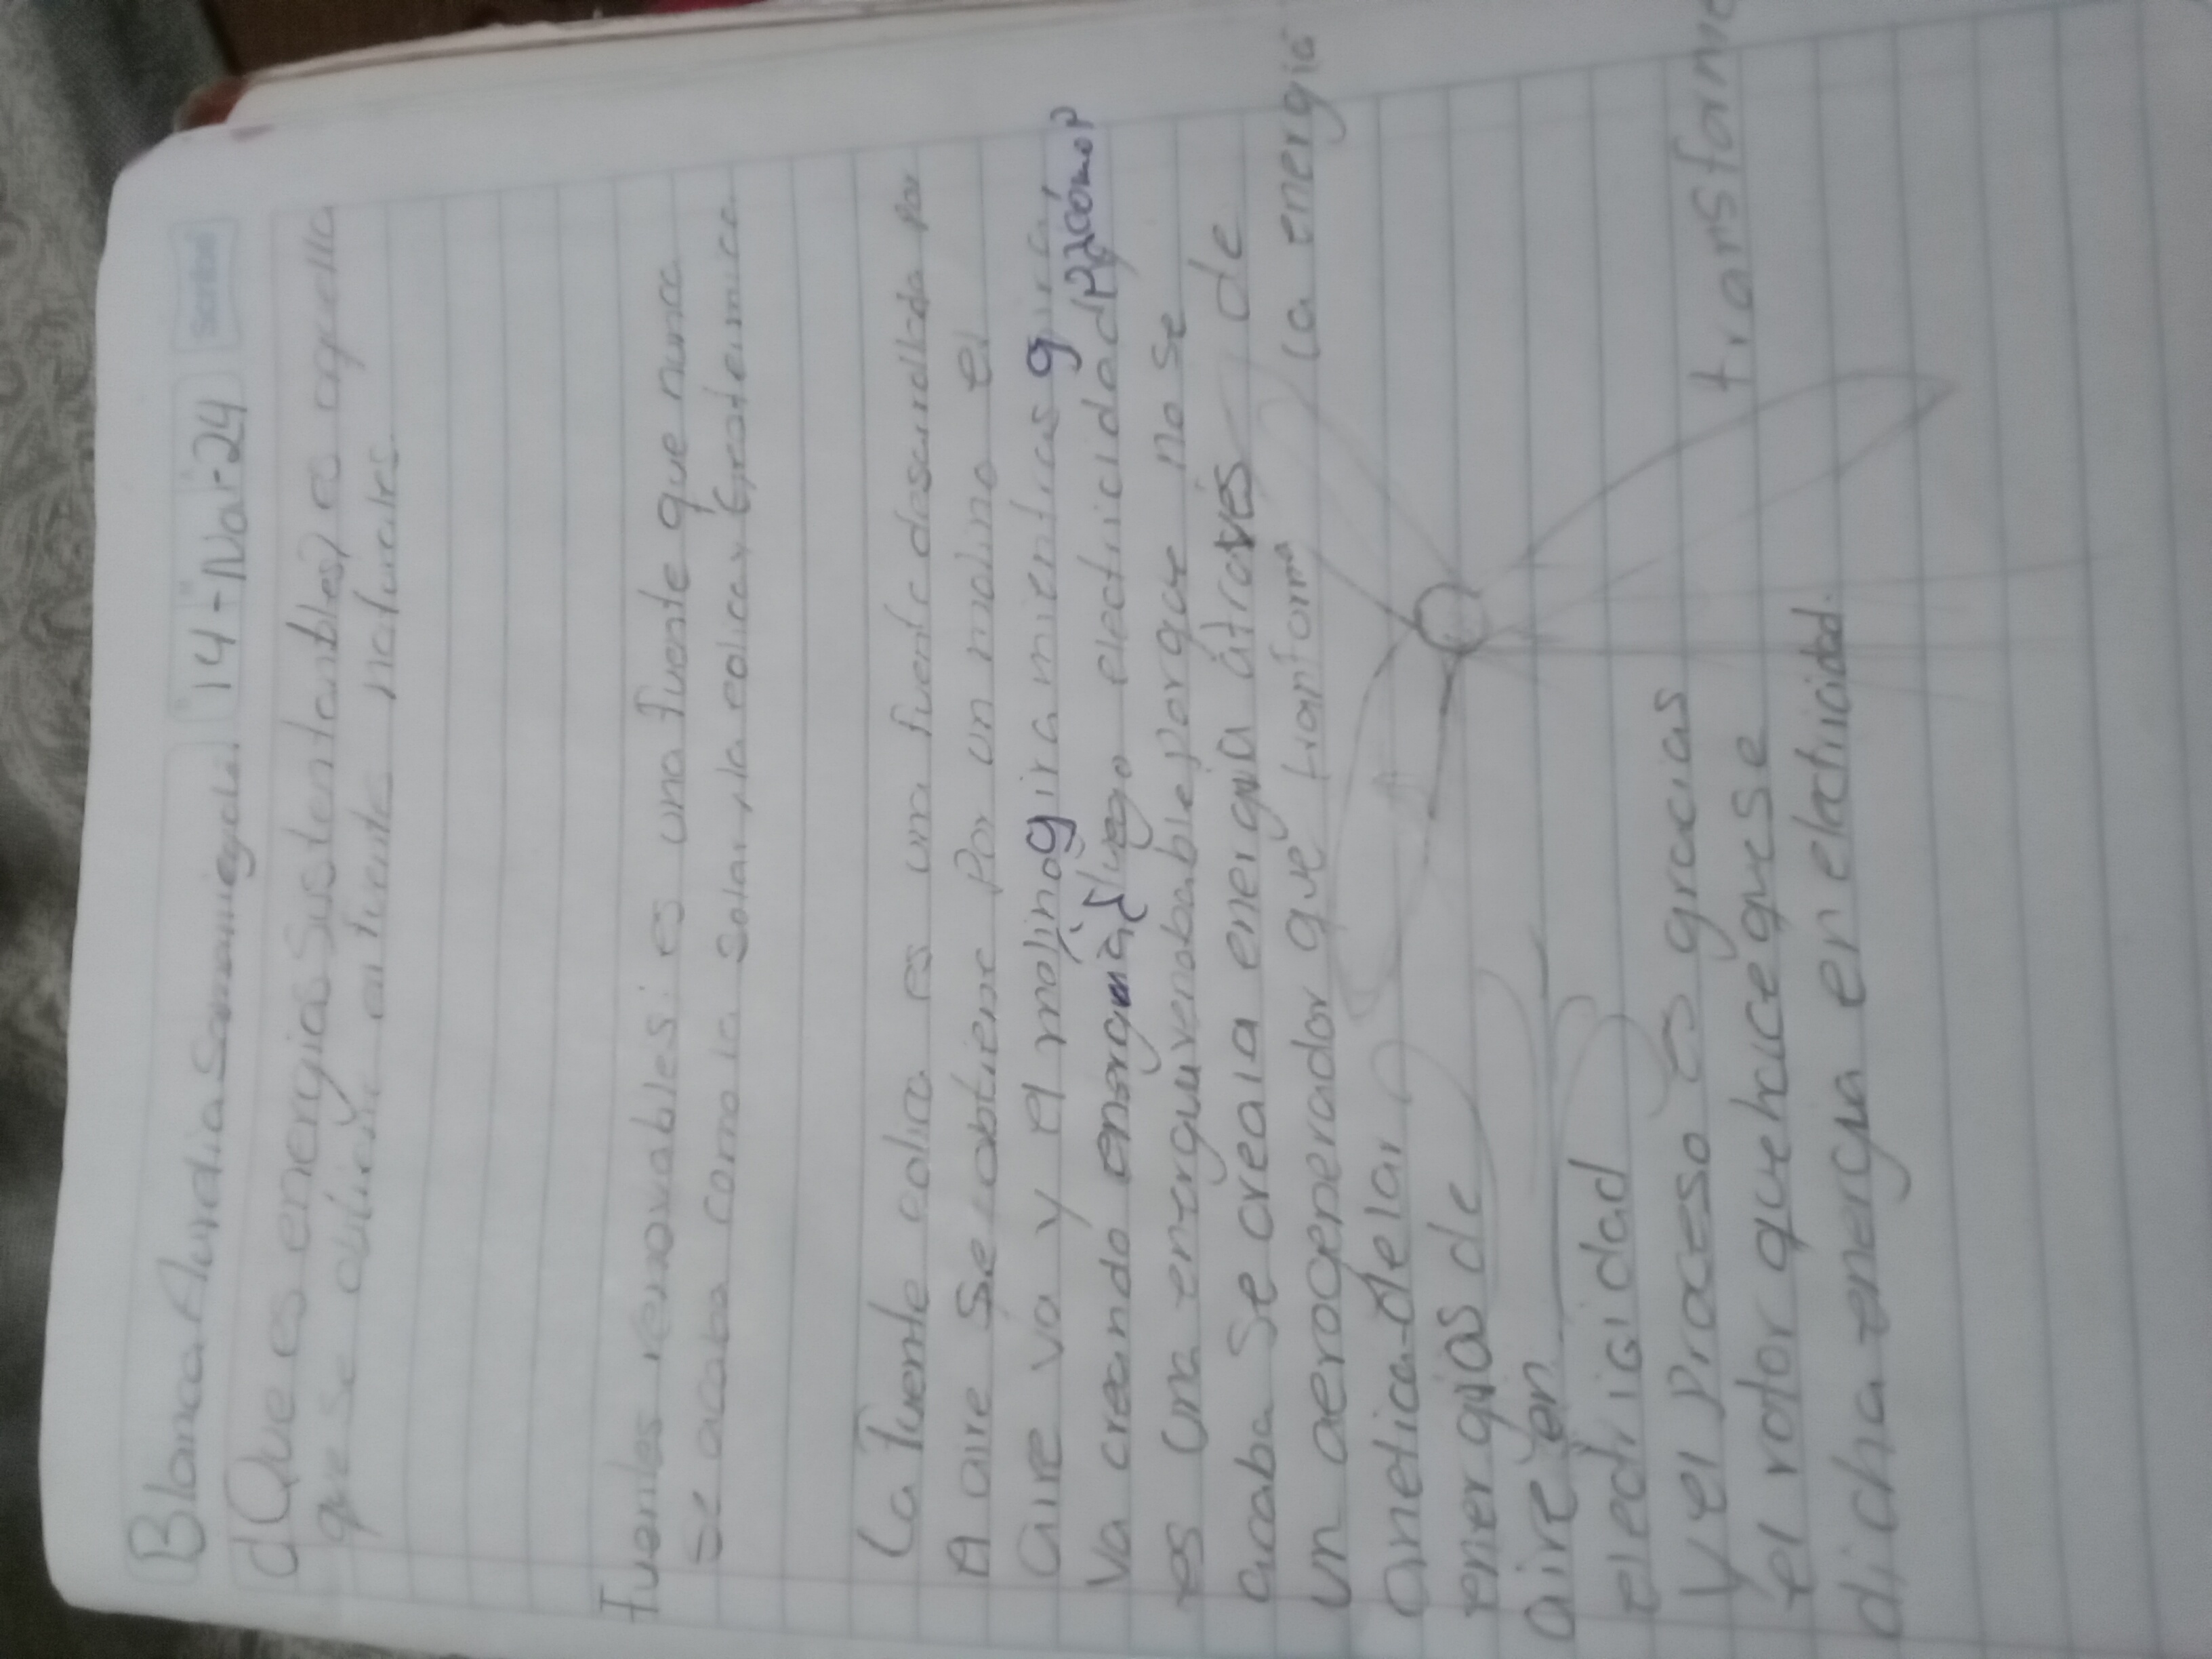 Blanca Fluvdia Samaniego
14-Nov-24
¿Que es energias sustentantbles? es aquella
que se obtiene en fuente naturales.
Fuentes renovables: es una fuente que nunca
se acaba como la solar, la eolica y Geotermica
La fuente eolica es una fuente desarrollada por
A aire se obtiene por un molino el
aire va y el molino gira mientras gira
va creando luego electricidad ¿cómo?
es una porque no se
acaba se crea la energia através de
un aerogenerador que tranforma la energia
cinetica del ar
energias de
aire en
eledricidad
y el proceso es gracias
el rotor que hace que se transforme
dicha energia en electricidad.